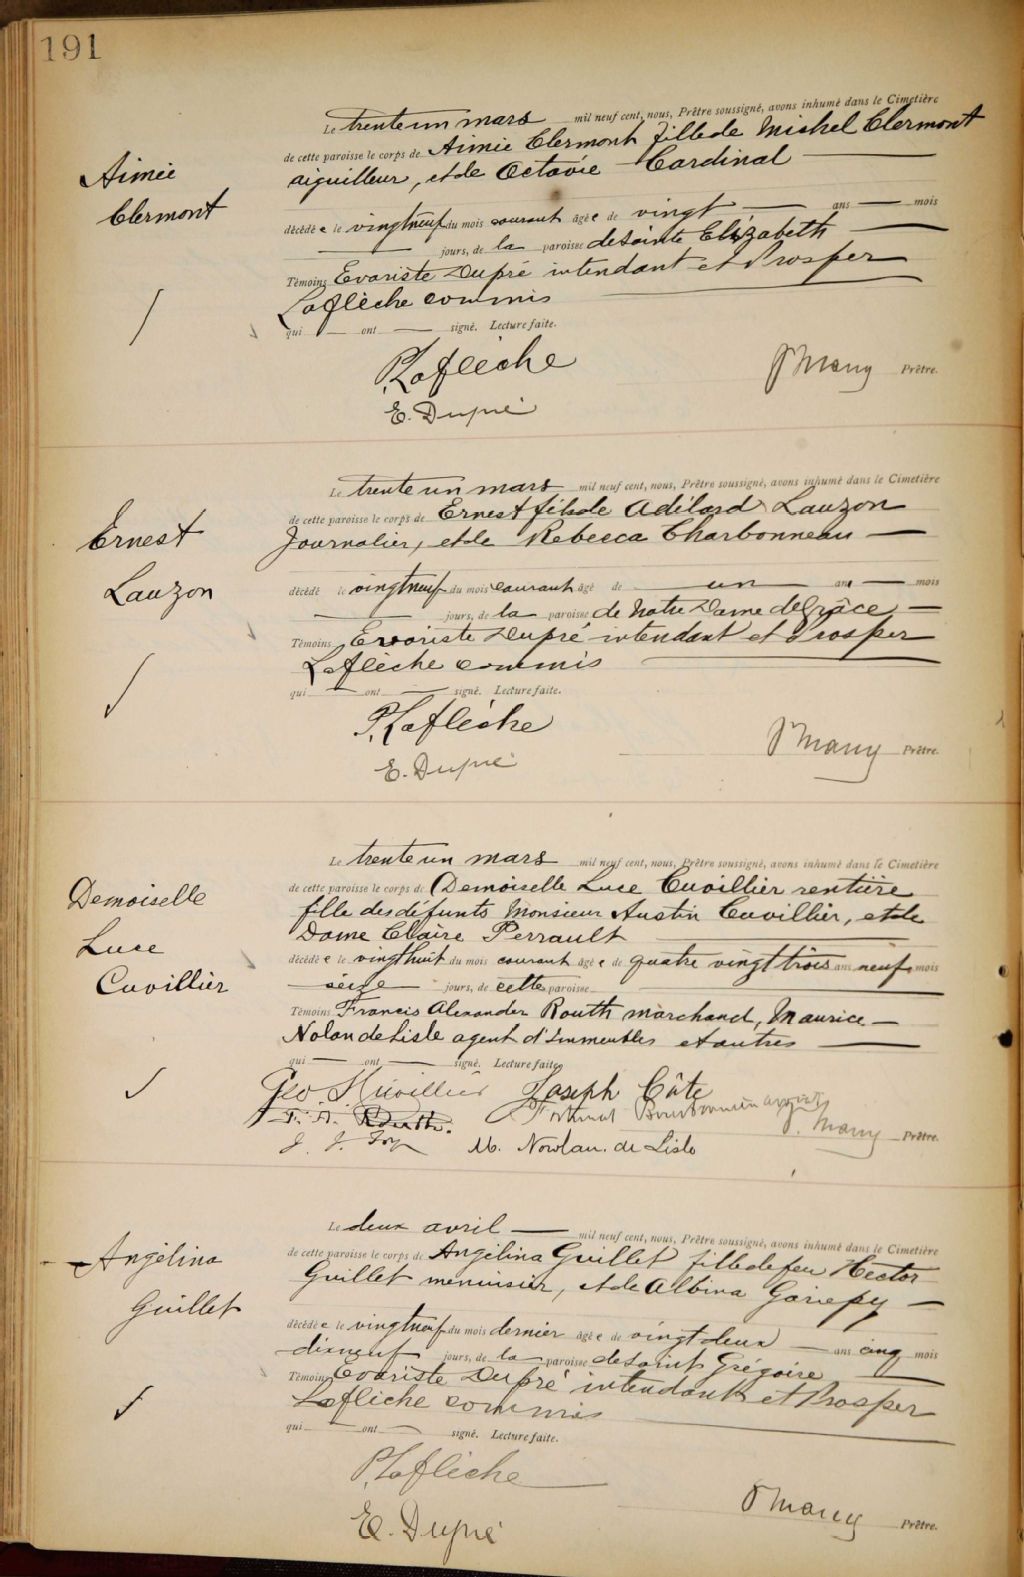 191
Aimée
Clermont
Le trente un mars mil neuf cent, nous, Prêtre soussigné, avons inhumé dans le Cimetière
de cette paroisse le corps de Aimée Clermont fille de Michel Clermont
aiguilleur, et de Octavie Cardinal
décédée le vingtneuf du mois courant âgée de vingt ans mois
jours, de la paroisse de Sainte Elizabeth
Témoins Evariste Dupré intendant et Prosper
Laflèche commis
qui ont signé. Lecture faite.
P. Laflèche
Prêtre.
E. Dupré
Ernest
Lauzon
Le trente un mars mil neuf cent, nous, Prêtre soussigné, avons inhumé dans le Cimetière
de cette paroisse le corps de Ernest fils de Adélard Lauzon
Journalier, et de Rebecca Charbonneau
décédé le vingtneuf du mois courant âgé de un an mois
jours, de la paroisse de Notre Dame de Grâce
Témoins Evariste Dupré intendant et Prosper
Laflèche commis
qui ont signé. Lecture faite.
P. Laflèche
Prêtre.
E. Dupré
Demoiselle
Luce
Cuvillier
Le trente un mars mil neuf cent, nous, Prêtre soussigné, avons inhumé dans le Cimetière
de cette paroisse le corps de Demoiselle Luce Cuvillier rentière
fille des défunts Monsieur Austin Cuvillier, et de
Dame Claire Perrault
décédée le vingthuit du mois courant âgée de quatre vingt trois ans neuf mois
seize jours, de cette paroisse
Témoins Francis Alexander Routh marchand, Maurice
Nolan de Lisle agent d'Immeubles et autres
qui ont signé. Lecture faite.
Geo. S. Cuvillier Joseph Côte
F. A. Routh. Fortunat Bourbonnière
Prêtre.
J. J. M. Nowlan de Lisle
Angélina
Guillet
Le deux avril mil neuf cent, nous, Prêtre soussigné, avons inhumé dans le Cimetière
de cette paroisse le corps de Angélina Guillet fille de feu Hector
Guillet menuisier, et de Albina Gariepy
décédée le vingtneuf du mois dernier âgée de vingt deux ans cinq mois
dixneuf jours, de la paroisse de Saint Grégoire
Témoins Evariste Dupré intendant et Prosper
Laflèche commis
qui ont signé. Lecture faite.
P. Laflèche
Prêtre.
E. Dupré